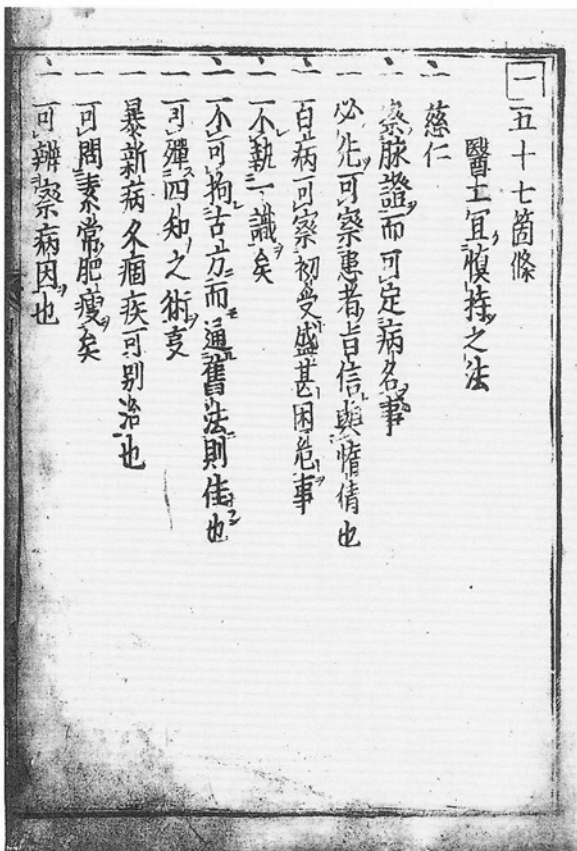 一 五十七箇條
醫工宜慎持之法
一 慈仁
一 察脉證而可定病名事
一 必先可察患者信與惰倩也
一 百病可察初受盛甚困危事
一 不執一識矣
一 不可拘古方而通舊法則佳也
一 可殫四知之術叓
一 暴新病久痼疾可別治也
一 可問素常肥瘦矣
一 可辨察病因也